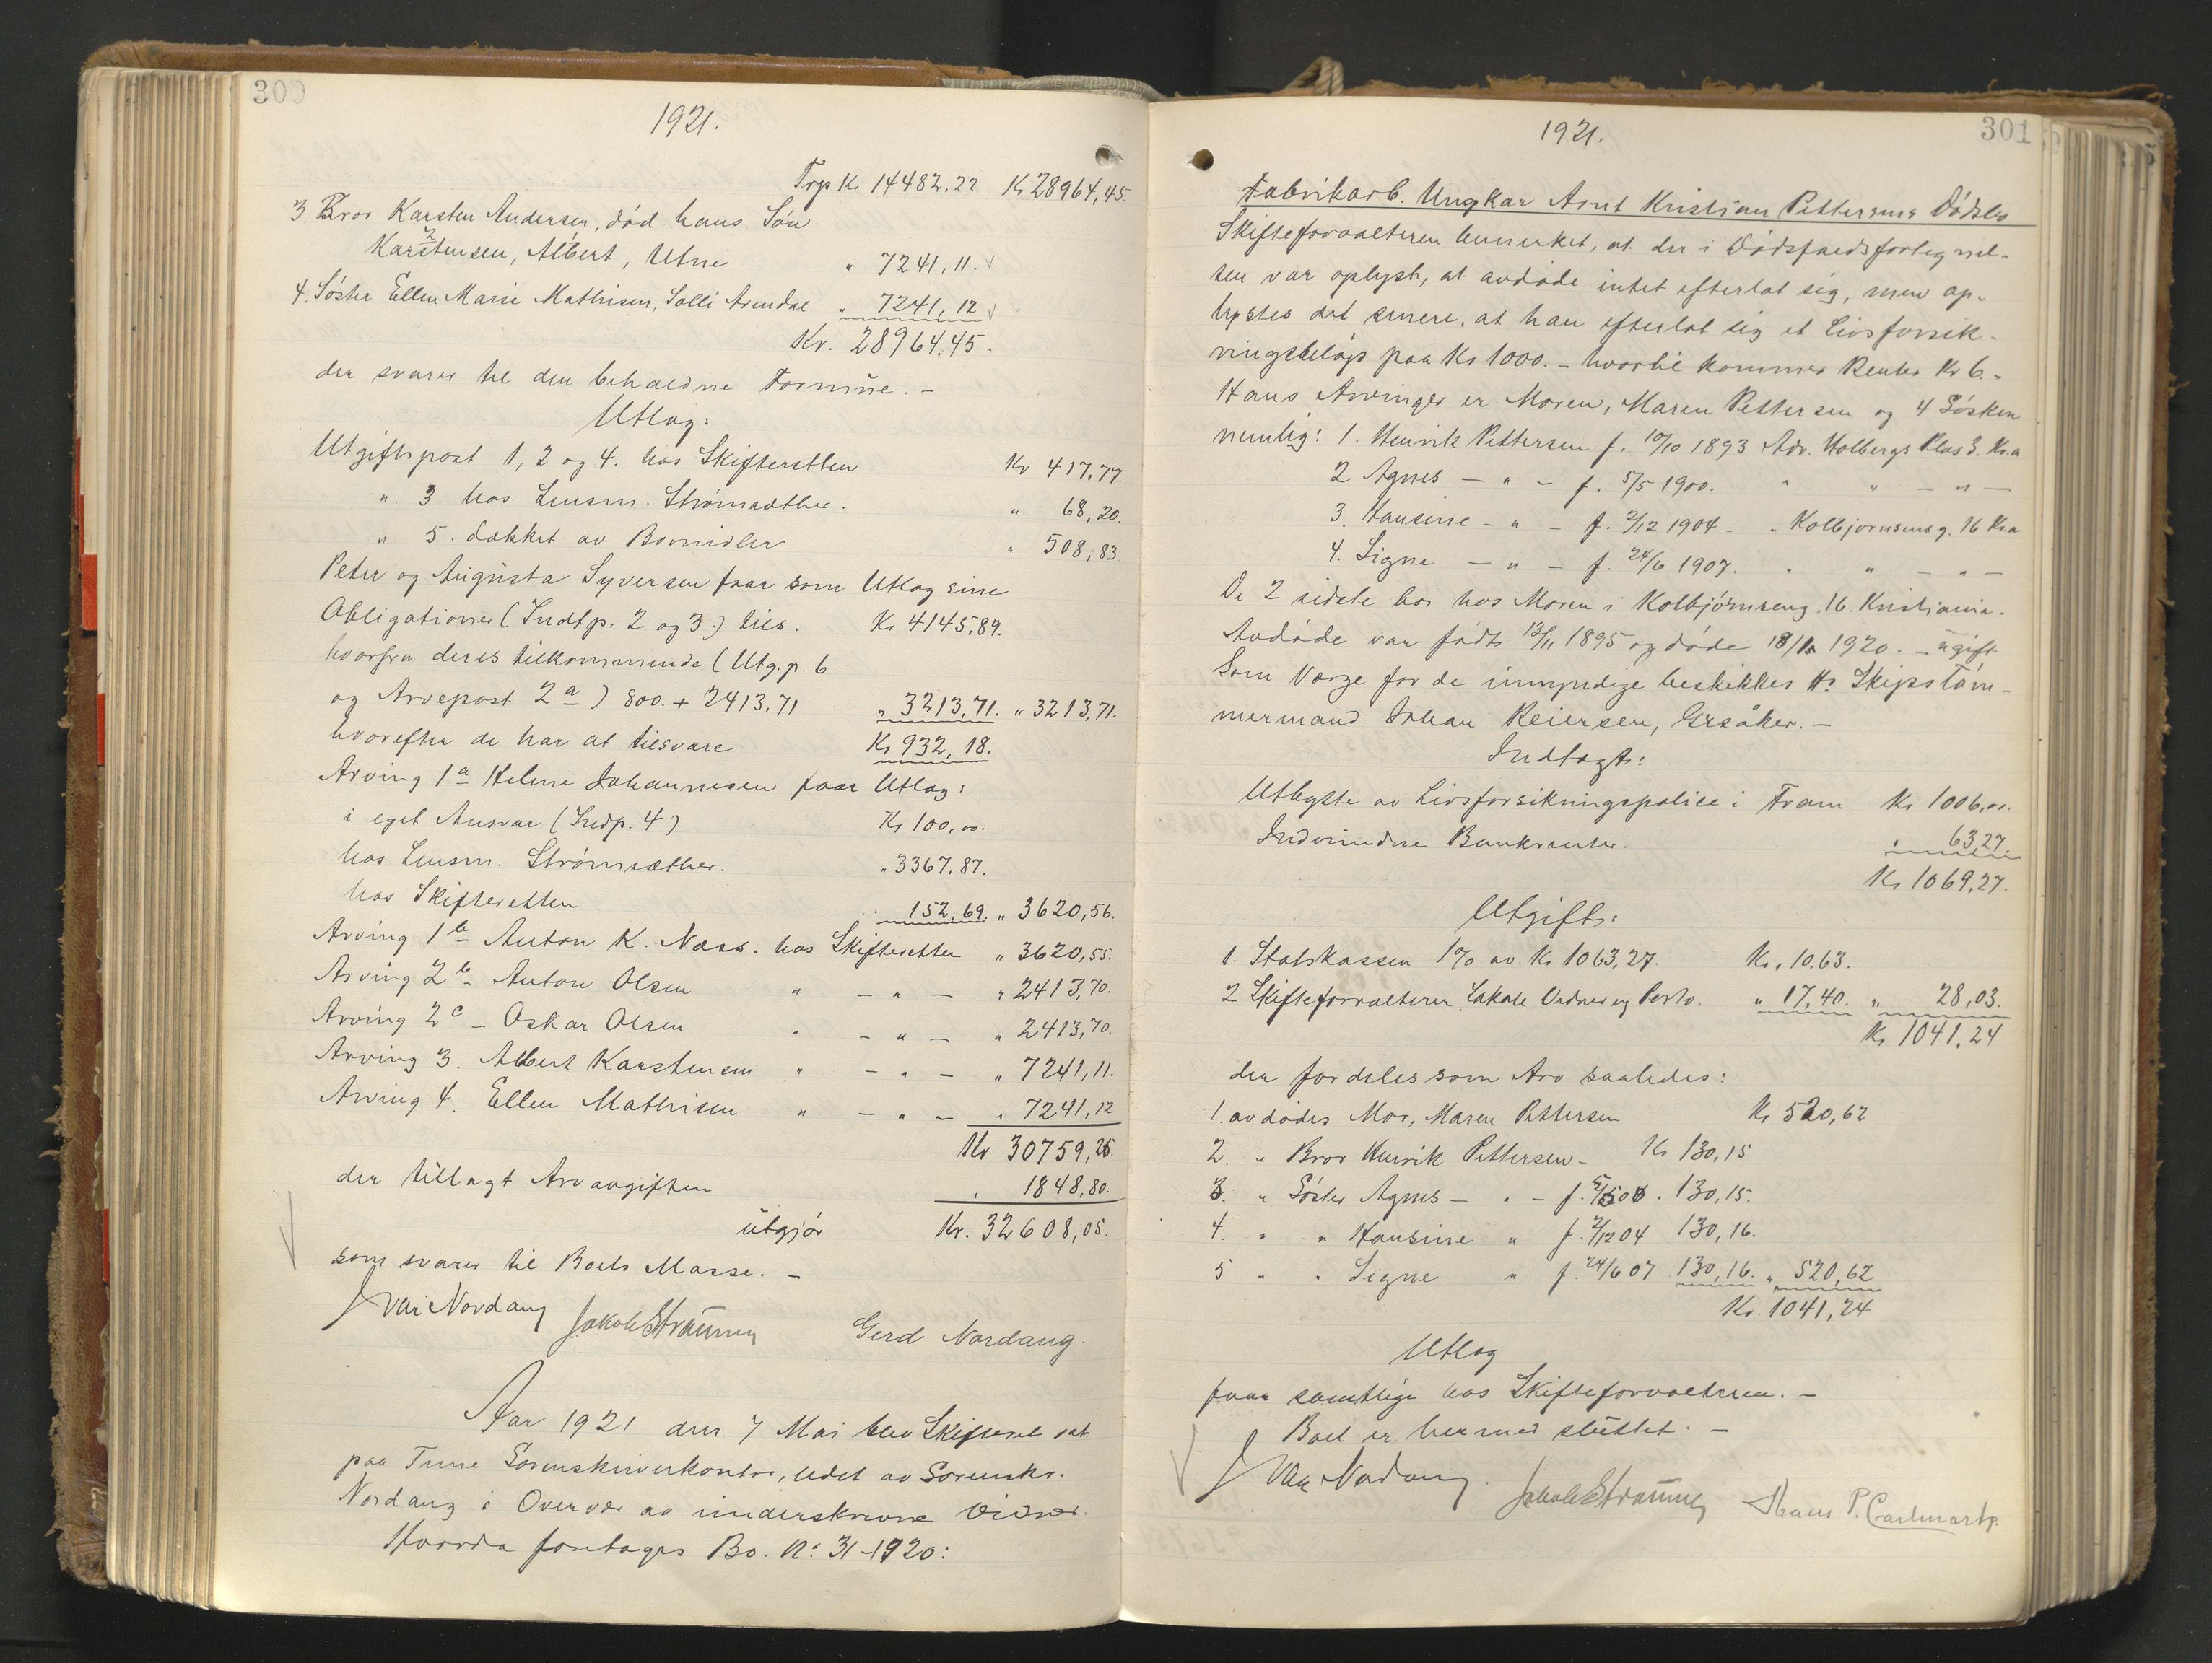 300
1921.
Trp Kr 14482.22 Kr 28964,45.
3. Bror Karsten Andersen, død hans Søn
Karstensen, Albert, Utne " 7241,11.
4. Søster Ellen Marie Mathisen, Solli Arendal " 7241,12
Kr. 28964.45.
der svarer til den beholdne Formue. –
Utlæg:
Utgiftspost 1, 2 og 4. hos Skifteretten Kr 417,77.
" 3 hos Lensm. Strømsæther. " 68,20.
" 5. dækket av Bomidler " 508,83.
Peter og Augusta Syversen faar som Utlæg sine
Obligationer (Indtp. 2 og 3.) tils. Kr 4145,89.
hvorfra deres tilkommende (Utg.p. 6
og Arvepost 2a) 800. + 2413,71 " 3213,71. " 3213,71.
hvorefter de har at tilsvare Kr 932,18.
Arving 1a Helene Johannesen faar Utlæg:
i eget Ansvar (Indp. 4) Kr 100,00.
hos Lensm. Strømsæther. " 3367.87.
hos Skifteretten 152,69. " 3620,56.
Arving 1b Anton K. Næss. hos Skifteretten " 3620,55.
Arving 2b – Anton Olsen " – " – " 2413,70.
Arving 2c – Oskar Olsen " – " – " 2413,70.
Arving 3. Albert Karstensen " – " – " 7241,11.
Arving 4. Ellen Mathisen " – " – " 7241,12
Kr 30759,25.
der tillagt Arveavgiften " 1848,80.
utgjør Kr. 32608,05.
som svarer til Boets Masse. –
Ivar Nordang Jakob Strømmen Gerd Nordang.
Aar 1921 den 7 Mai blev Skifteret sat
paa Tune Sorenskriverkontor, ledet av Sorenskr.
Nordang i Overvær av underskrevne Vidner.
Hvorda foretoges Bo. No: 31–1920:
301
1921.
Fabrikarb. Ungkar Arnt Kristian Pettersens Dødsbo
Skifteforvalteren bemerket, at der i Dødsfaldsfortegnel-
sen var oplyst, at avdøde intet efterlot sig, men op-
lystes det senere, at han efterlot sig et Livsforsik-
ringsbeløp paa Kr 1000. – hvortil kommer Renter Kr 6. –
Hans Arvinger er Moren, Maren Pettersen og 4 Søsken
nemlig: 1. Henrik Pettersen f. 10/10 1893 Adr. Holbergs Plas 3. Kr.a
2 Agnes – " – f. 5/5 1900. " " – " –
3. Hansine – " – f. 2/12 1904 – " Kolbjørnsensg. 16 Kr.a
4. Signe – " – f. 24/6 1907. " " – " –
De 2 sidste bor hos Moren i Kolbjørnseng. 16. Kristiania.
Avdøde var født 13/11 1895 og døde 18/11 1920. – ugift
Som Værge for de umyndige beskikkes Hr Skipstøm-
mermand Johan Reiersen, Greåker. –
Indtægt:
Utbytte av Livsforsikringspolice i Fram Kr 1006,00.
Indvundne Bankrenter. " 63,27.
Kr 1069,27.
Utgift:
1. Statskassen 1% av Kr 1063,27. Kr. 10,63.
2 Skifteforvalteren Lokale Vidner og Porto. " 17,40. " 28,03.
Kr 1041,24
der fordeles som Arv saaledes:
1. avdødes Mor, Maren Pettersen Kr 520,62
2. " Bror Henrik Pettersen – Kr 130,15
3. " Søster Agnes – " – f. 5/5 00. 130,15.
4. " " Hansine " f. 2/12 04 130,16.
5 " " Signe " f. 24/6 07 130,16. " 520,62
Kr. 1041,24
Utlæg
faar samtlige hos Skifteforvalteren. –
Boet er hermed sluttet. –
Ivar Nordang. Jakob Strømmen Hans P.